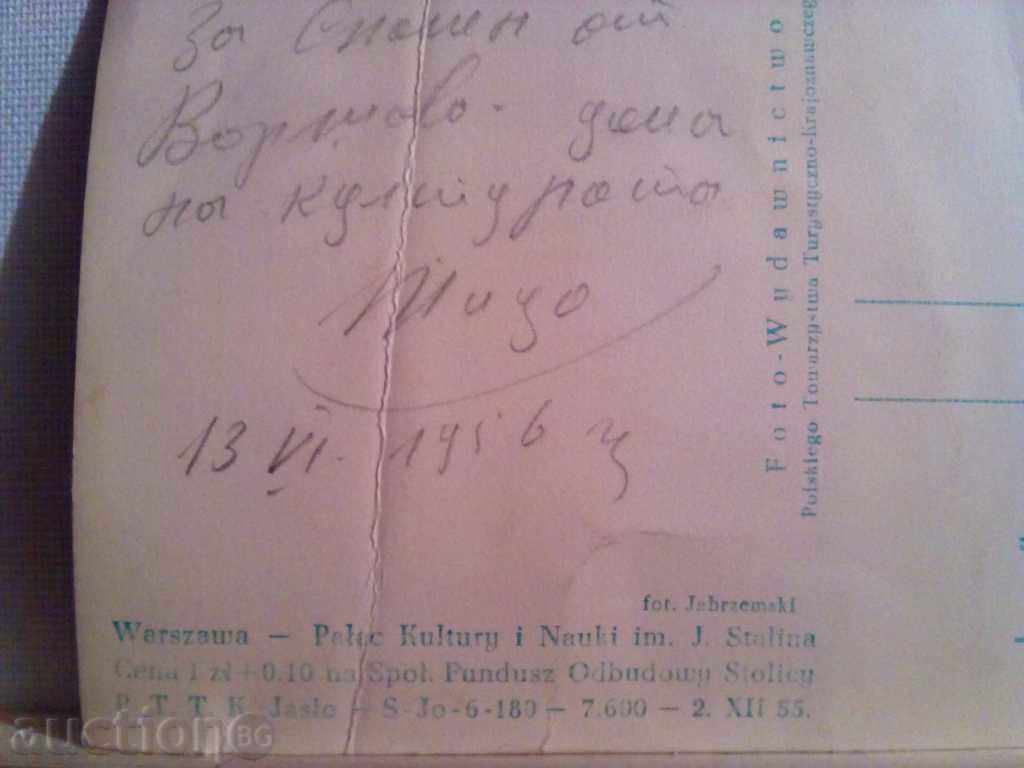 За Спомен от
Воршово - дома
на културата
13 VI. 1956 г
Foto-Wydawnictwo
Polskiego Towarzystwa Turystyczno-Krajoznawczeg
fot. Jabrzemski
Warszawa — Pałac Kultury i Nauki im. J. Stalina
Cena 1 zł + 0.10 na Społ. Fundusz Odbudowy Stolicy
P. T. T. K. Jasło — S-Jo-6-180 — 7.600 — 2. XII 55.
auctionBG